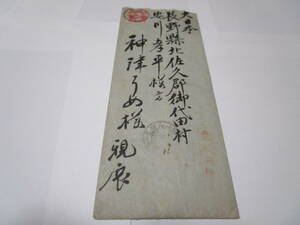 大日本
長野縣北佐久郡御代田村
孝平様方
神津うめ様
親展